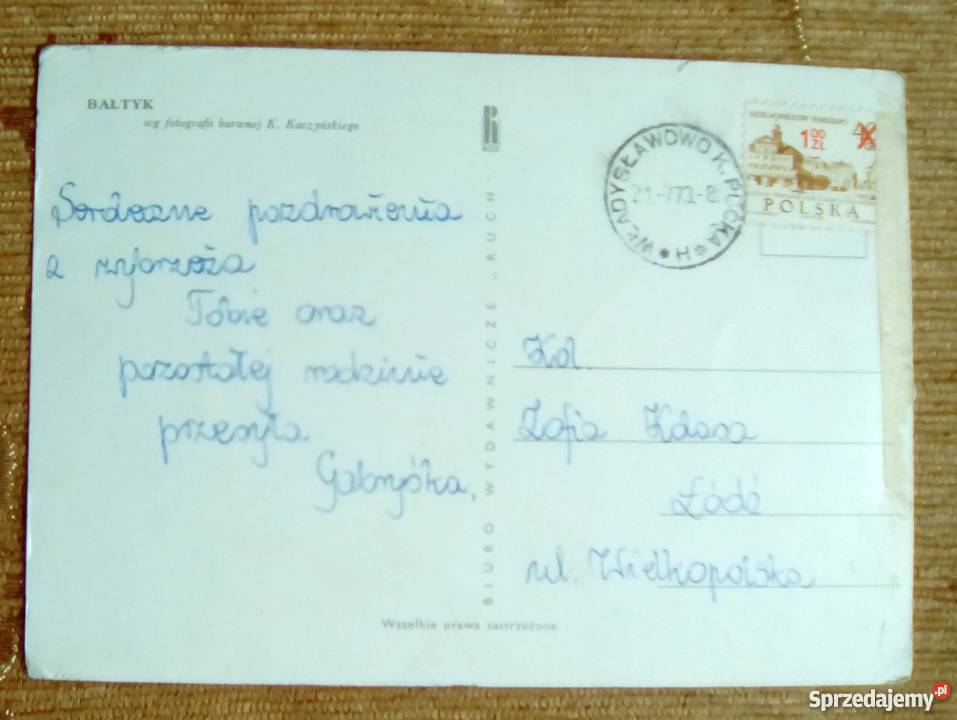 BAŁTYK
wg fotografii barwnej K. Kaczyńskiego
Serdeczne pozdrowienia
z wybrzeża
Tobie oraz
pozostałej rodzinie
przesyła
Gabryśka.
BIURO WYDAWNICZE „RUCH"
WŁADYSŁAWOWO K. PUCKA H
1 00 ZŁ
POLSKA
Kol.
Zofia
Łódź
ul. Wielkopolska
Wszelkie prawa zastrzeżone
Sprzedajemy.pl